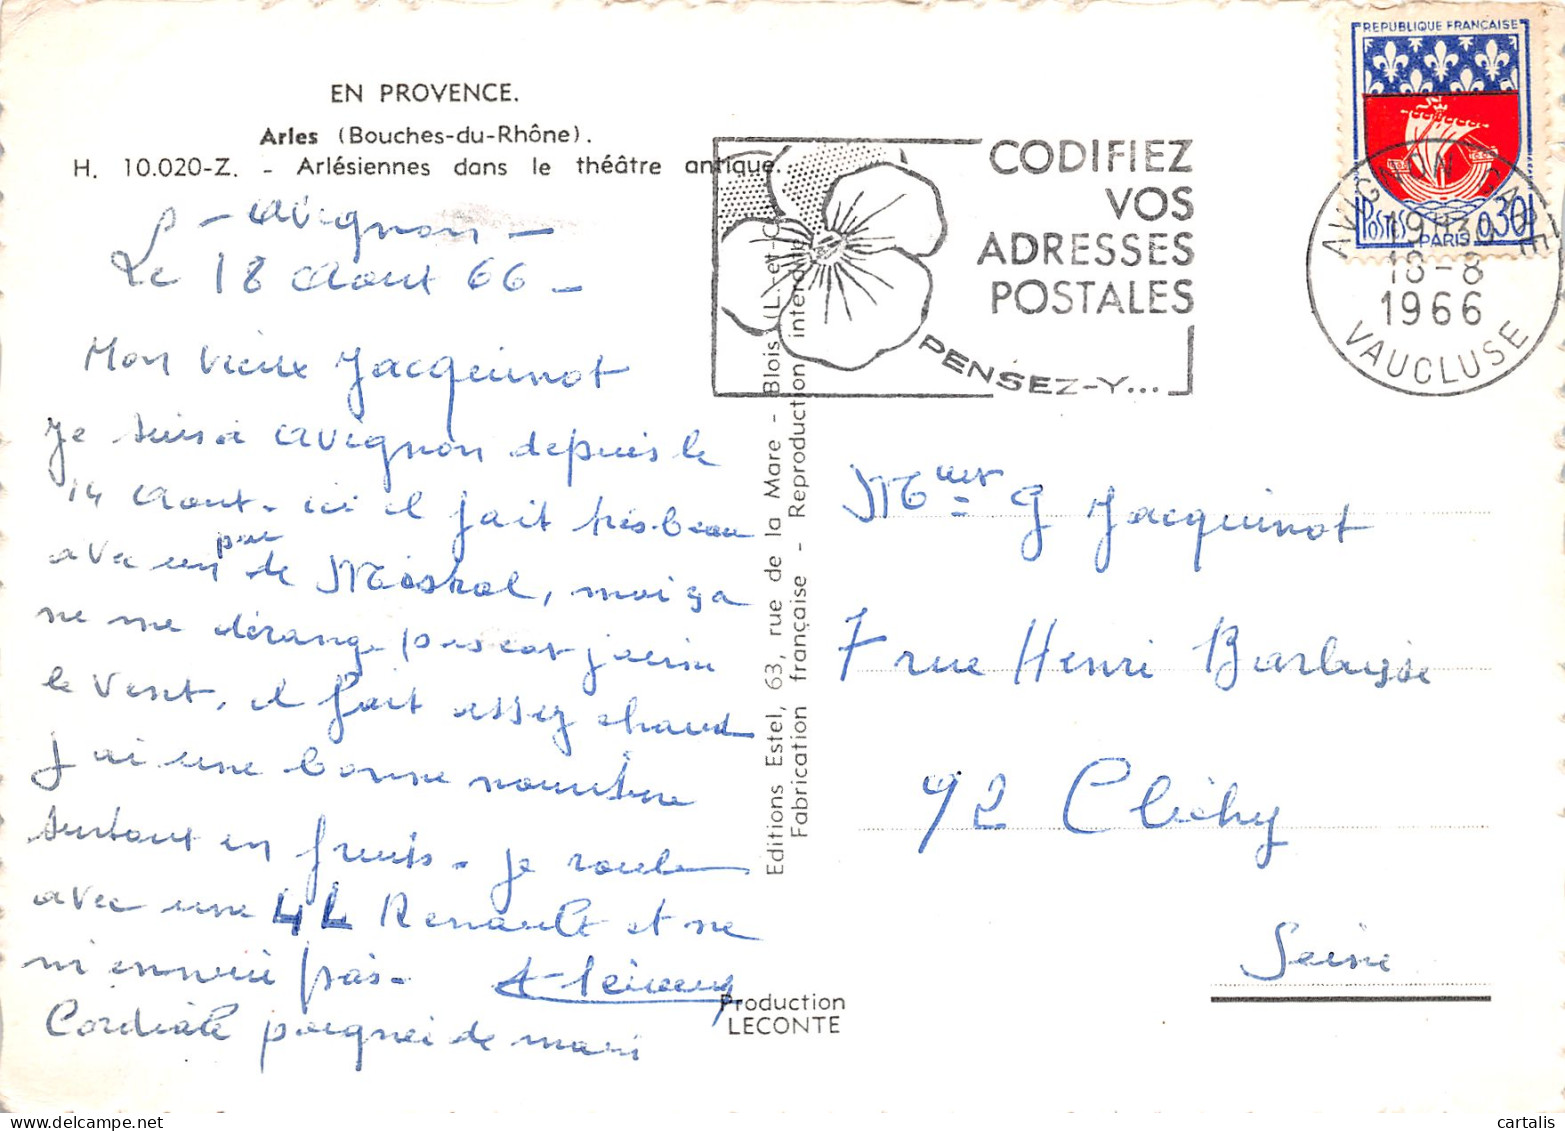 EN PROVENCE.
Arles (Bouches-du-Rhône).
H. 10.020-Z. - Arlésiennes dans le théâtre antique.
- Avignon -
Le 18 Aout 66 -
Mon vieux Jacquinot
Je suis à Avignon depuis le
14 Aout - ici il fait très beau
avec un peu de Mistral, moi ça
ne me dérange pas car j'aime
le vent, il fait assez chaud
j'ai une bonne nourriture
surtout en fruits - je roule
avec une 4L Renault et ne
m'ennuie pas -
Cordiale poignei de main
Editions Estel, 63, rue de la Mare - Blois (L.-et-C
Fabrication française - Reproduction interdi
Production
LECONTE
CODIFIEZ
VOS
ADRESSES
POSTALES
PENSEZ-Y...
REPUBLIQUE FRANÇAISE
POSTES 0,30
PARIS
AVIGNON GARE
19H30
18-8
1966
VAUCLUSE
G Jacquinot
7 rue Henri Barbusse
92 Clichy
Seine